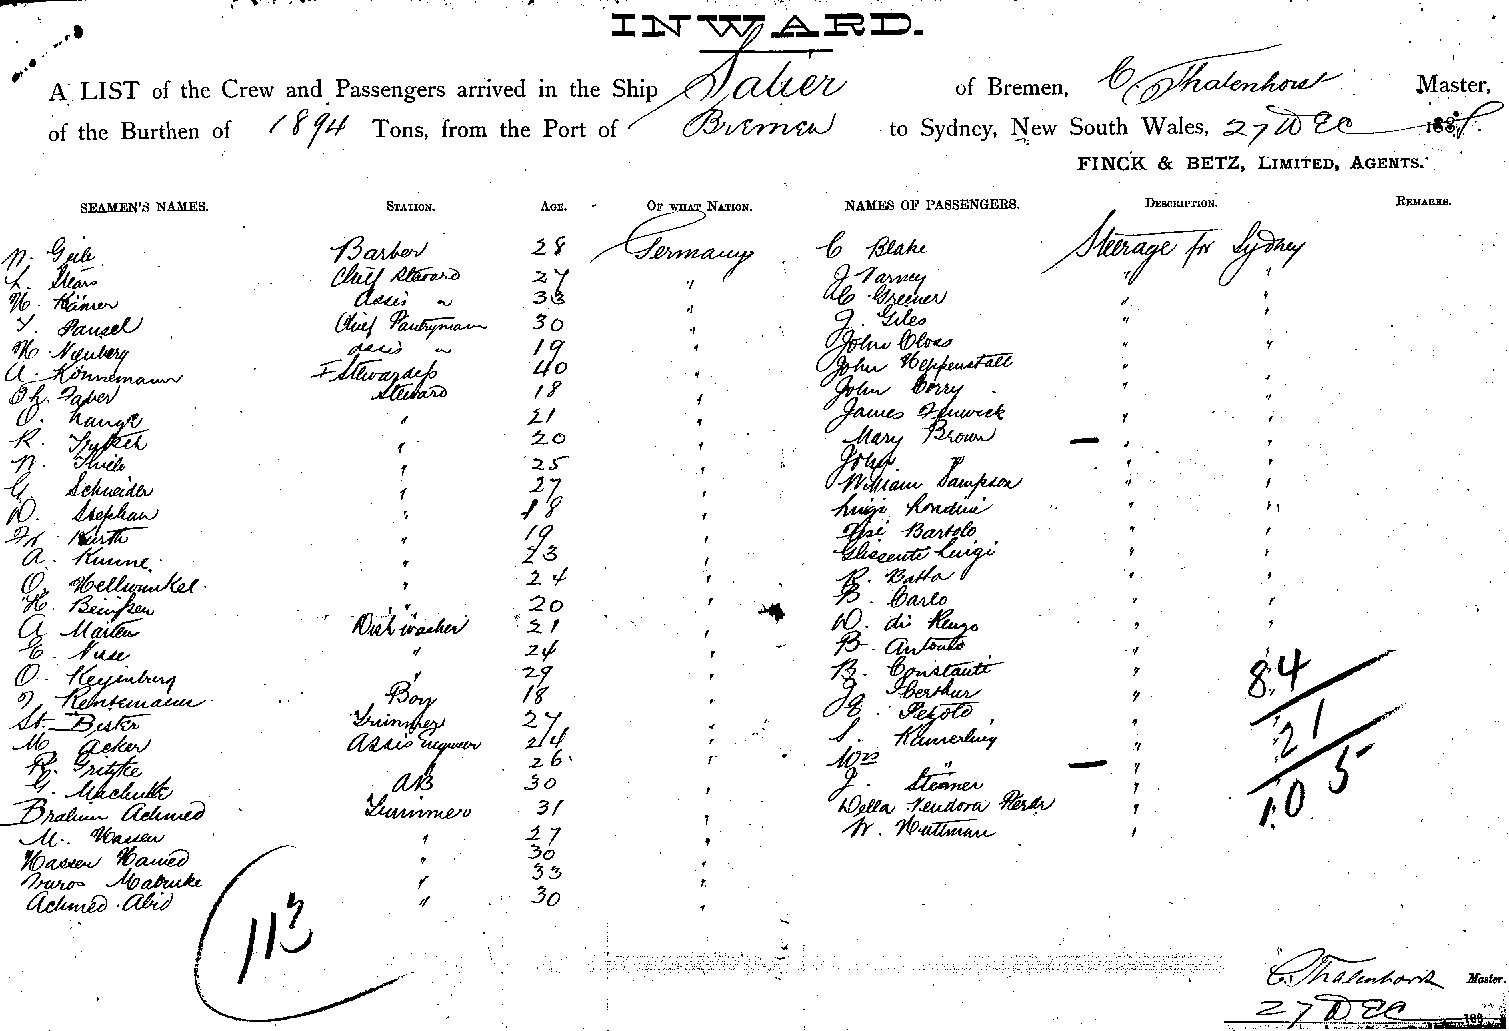 INWARD.
A LIST of the Crew and Passengers arrived in the Ship Salier of Bremen, C Thalenhorst Master,
of the Burthen of 1894 Tons, from the Port of Bremen to Sydney, New South Wales, 27 DEC 188
FINCK & BETZ, LIMITED, AGENTS.
SEAMEN'S NAMES. STATION. AGE. OF WHAT NATION. NAMES OF PASSENGERS. DESCRIPTION. REMARKS.
N. Barber 28 Germany C Blake Steerage for Sydney
Chief Steward 27 " J Varney " "
H. assis " 33 " Greener " "
Chief Pantryman 30 " J. Giles " "
H. Neuberg assis " 19 " John Cloas " "
A. Könnemann Stewardess 40 " John Heppenstall " "
Th. Faber Steward 18 " John Corry " "
O. Lange " 21 " James Fenwick " "
R. " 20 " Mary Brown — " "
N. Thiele " 25 " John " "
G. Schneider " 27 " William Sampson " "
D. Stephan " 18 " Luigi Rondini " "
Fr Kurth " 19 " Bartolo " "
A. Kunne " 23 " Glissenti Luigi " "
O. Hellwinkel " 24 " R. Batta " "
H. " 20 " B. Carlo " "
A Marten Dishwasher 21 " D. di Renzo " "
E. Nuse " 24 " B. Antonio "
O. Heyenberg " 29 " B. Constanti " 84
Rensemann Boy 18 " J Berthur "
St. Bester Trimmer 27 " Pezolo " 21
M. Acker Assis Engineer 24 " S. Kamerling "
R. Gritzke 26 " Mrs " —
G. Machuth AB 30 " J. Steiner " 105
Brahim Achmed Trimmer 31 " Della Vendora "
M. Hassen " 27 " W. Huttman "
Hassen Hamed " 30 "
Mabruke " 33 "
Achmed Abid " 30 "
113
C. Thalenhorst Master.
27 DEC 188